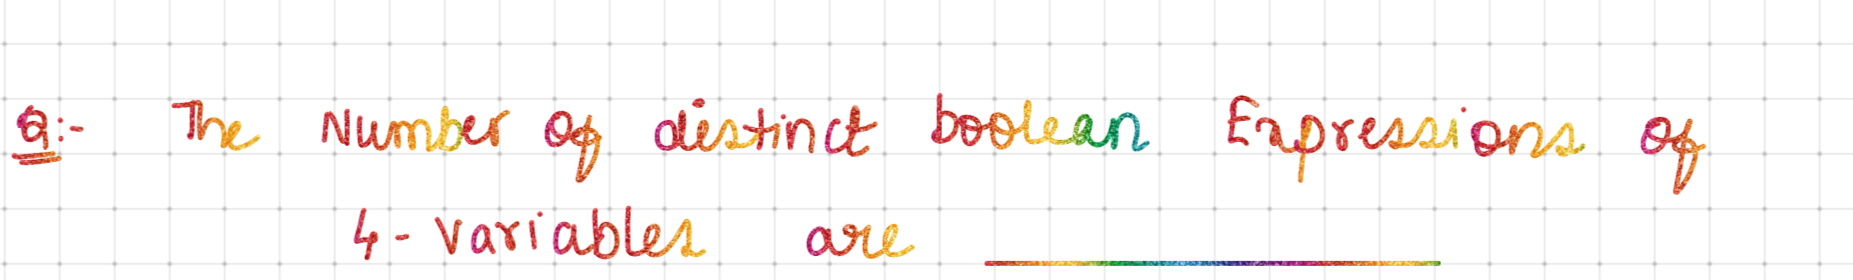 Q:- The Number of distinct boolean Expressions of
4-variables are